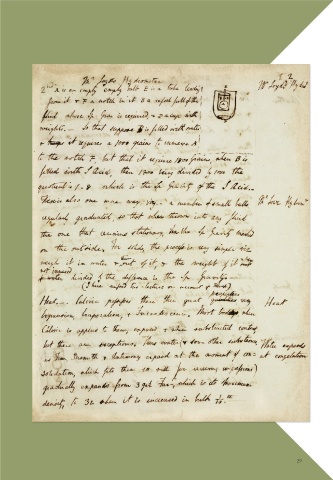 Mr Loyds Hydrometer
is an empty empty ball E is a tube
from it & F a notch in it B a vessel full of the
fluid whose Sp Grav is required &
weights. — So that suppose B is filled with water
& requires a 1000 grains to
to the notch F, but that it requires 1800 grains, when B is
filled with S. Acid, then 1800 being divided by 1000 the
quotient is 1.8 which is the Sp Gravity of the S Acid. —
There is also one more way, a number of small balls
regularly graduated, so that when thrown into any fluid
the one that remains stationary, has the Sp Gravity marked
on the outside. For solids, the process is very simple viz
weigh it in water & out of it, & the weight of it
not immersed
divided by the difference is the Sp Gravity —
Heat. — Caloric possesses three great
Expansion, Evaporation, & Incandescence. Most bodies when
Caloric is applied to them, expand, & when subtracted contract
but there are exceptions. Thus water & some other substances
as Iron Bismuth & Antimony expand at the moment of con-
solidation, which fits them so well for receiving impressions
gradually expands from 39½ Far, which is its maximum
density, to 32 when it is increased in bulk
2
Mr Loyds Hydr
Heat
Water expands
at congelation